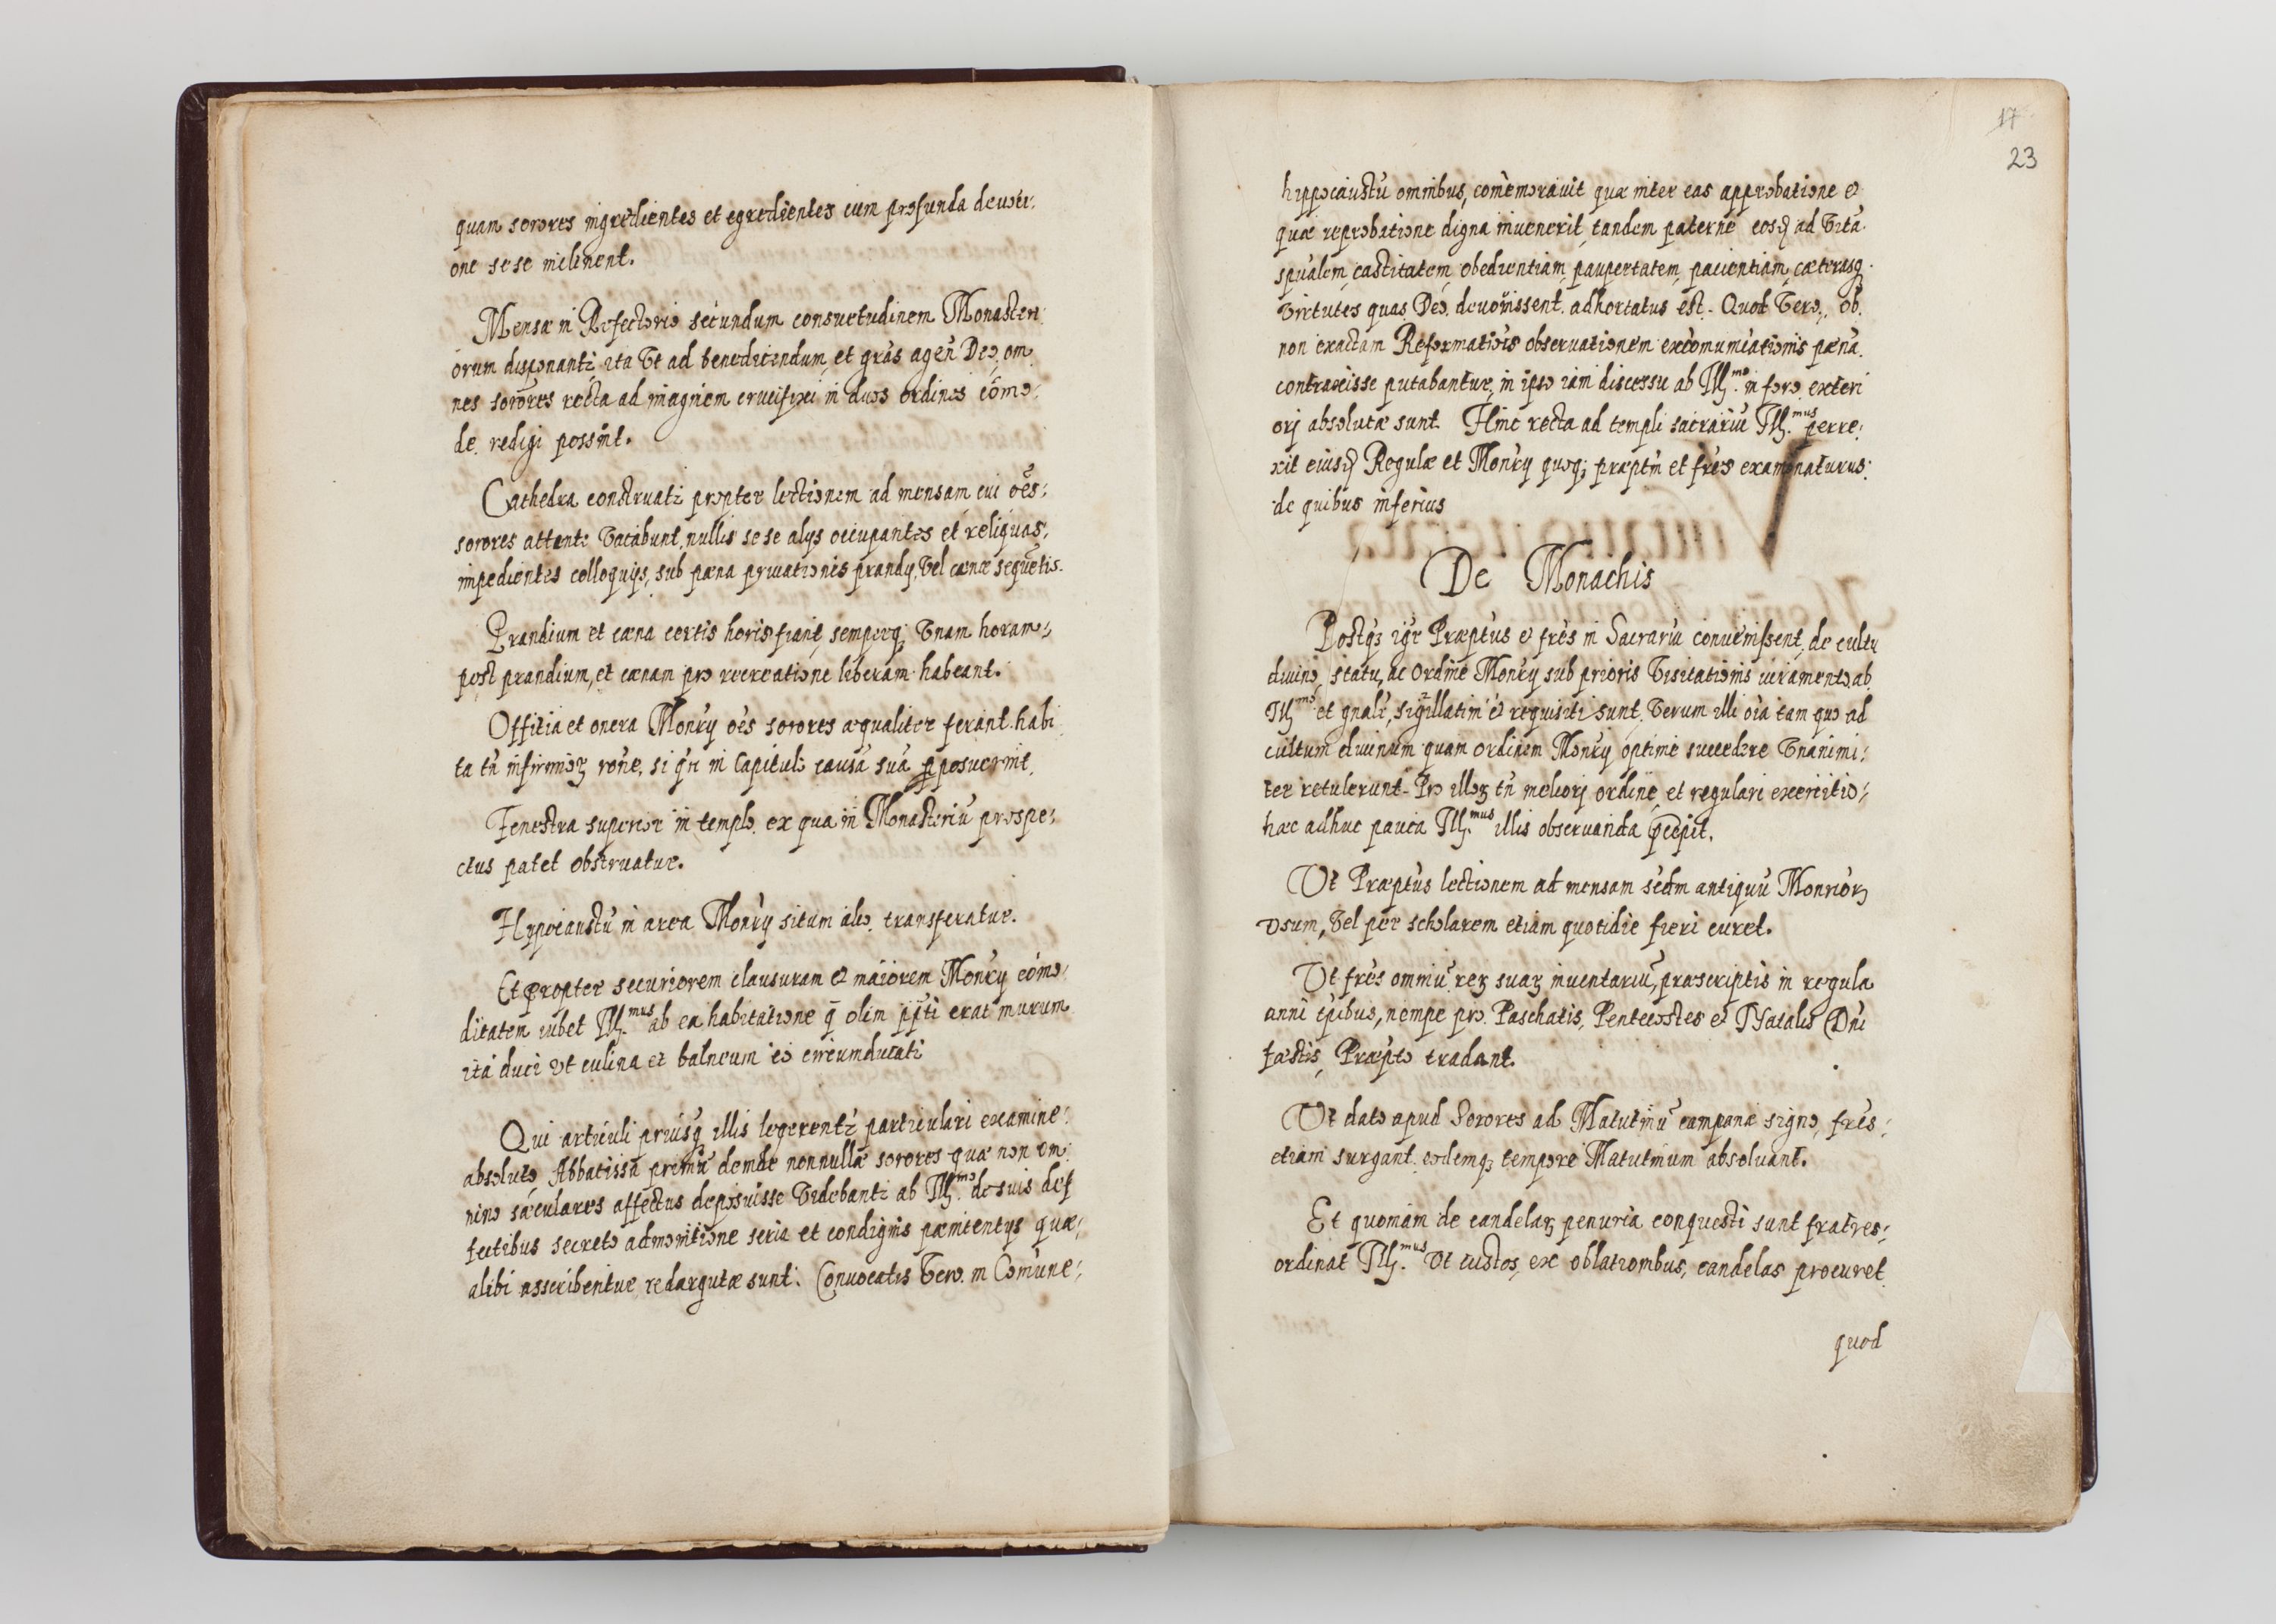 quam sorores ingredientes et egredientes cum profunda deuoti:
one sese inclinent.
Mensæ in Refectorio secundum consuetudinem Monasteri
orum disponantr, ita vt ad benedicendum, et grãs agen̄ Deo, om
nes sorores recta ad imaginem crucifixi in duos ordines com̄o:
de redigi possint.
Cathedra construatr propter lectionem ad mensam, cui oẽs:
sorores attente vacabunt, nullis sese alys occupantes et reliquas,
impedientes colloquys, sub pæna priuationis prandy, vel cænæ sequẽtis.
Prandium et cæna certis horis fiant, semperq; vnam horam:,
post prandium, et cænam pro recreatione liberam habeant.
Offitia et onera Mon̄ry oẽs sorores æqualiter ferant. habi
ta tñ infirmioꝝ rōne, si qñ in Capitulo causã suã ꝓposuerint.
Fenestra superior in templo. ex qua in Monasteriũ prospe:
ctus patet obstruatur.
Hypocaustũ in area Monry situm alio. transferatur.
Et propter securiorem clausuram et maiorem Monry com̄o:
ditatem iubet Ill.mus ab ea habitatione q̄ olim ppti erat murum
ita duci vt culina et balneum eo circumducatr
Qui articuli priusq illis legerentr particulari examine:
absoluto, Abbatissa primũ deinde nonnullæ sorores quæ non om
nino sæculares affectus deposuisse videbantr ab Ill.mo de suis def
fectibus secreto admonitione seria et condignis pænitentys quæ:
alibi asscribentur redargutæ sunt. Conuocatis vero. in Com̄une:,
17
23
hypocaustũ omnibus, com̄emorauit quæ inter eas approbatione et
quæ reprobatione digna inuenerit, tandem paterne easq ad vitã
spũalem, castitatem, obedientiam, paupertatem, pacientiam, cæterasq
virtutes quas Deo. deuouissent. adhortatus est. Quot vero, ob
non exactam Reformatiõis obseruationem excom̄unicationis pæna
contraxisse putabantur, in ipso iam discessu ab Ill.mo in foro exteri
orj absolutæ sunt. Hinc recta ad templi sacrariũ Ill.mus perre:
xit eiusq Regulæ et Monry quoq; præptm et frẽs examinaturus:
de quibus inferius
De Monachis
Postq̃ igr Præptus et frẽs in Sacrariũ conuenissent, de cultu
diuino, statu, ac Ordine Monry sub prioris visitationis iuramento. ab
Ill.mo et gnalr, sigillatim et requisiti sunt. Verum illi oĩa tam quo ad
cultum diuinum quam ordinem Monry optime succedere vnanimi:
ter retulerunt. Pro illoꝝ tñ meliorj ordine, et regulari exercitio:
hæc adhuc pauca Ill.mus illis obseruanda p̄cepit.
Vt Præptus lectionem ad mensam secdm antiquũ Monrioꝝ
vsum, vel per scholarem etiam quotidie fieri curet.
Vt frẽs omniũ reꝝ suaꝝ inuentariũ, præscriptis in regula
anni tpibus, nempe pro Paschatis, Pentecostes et Natalis Dñi
fæstis, Præpto tradant.
Vt dato apud Sorores ad Matutinũ campanæ signo, frẽs:
etiam surgant. eodemq; tempore Matutinum absoluant.
Et quoniam de candelaꝝ penuria conquesti sunt fratres:
ordinat Ill.mus vt custos, ex oblationibus, candelas procuret.
quod